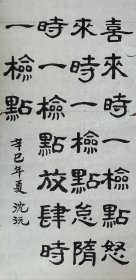 喜來時一檢點怒
來時一檢點怠隋
時一檢點放肆時
一檢點
辛巳年夏沈玩